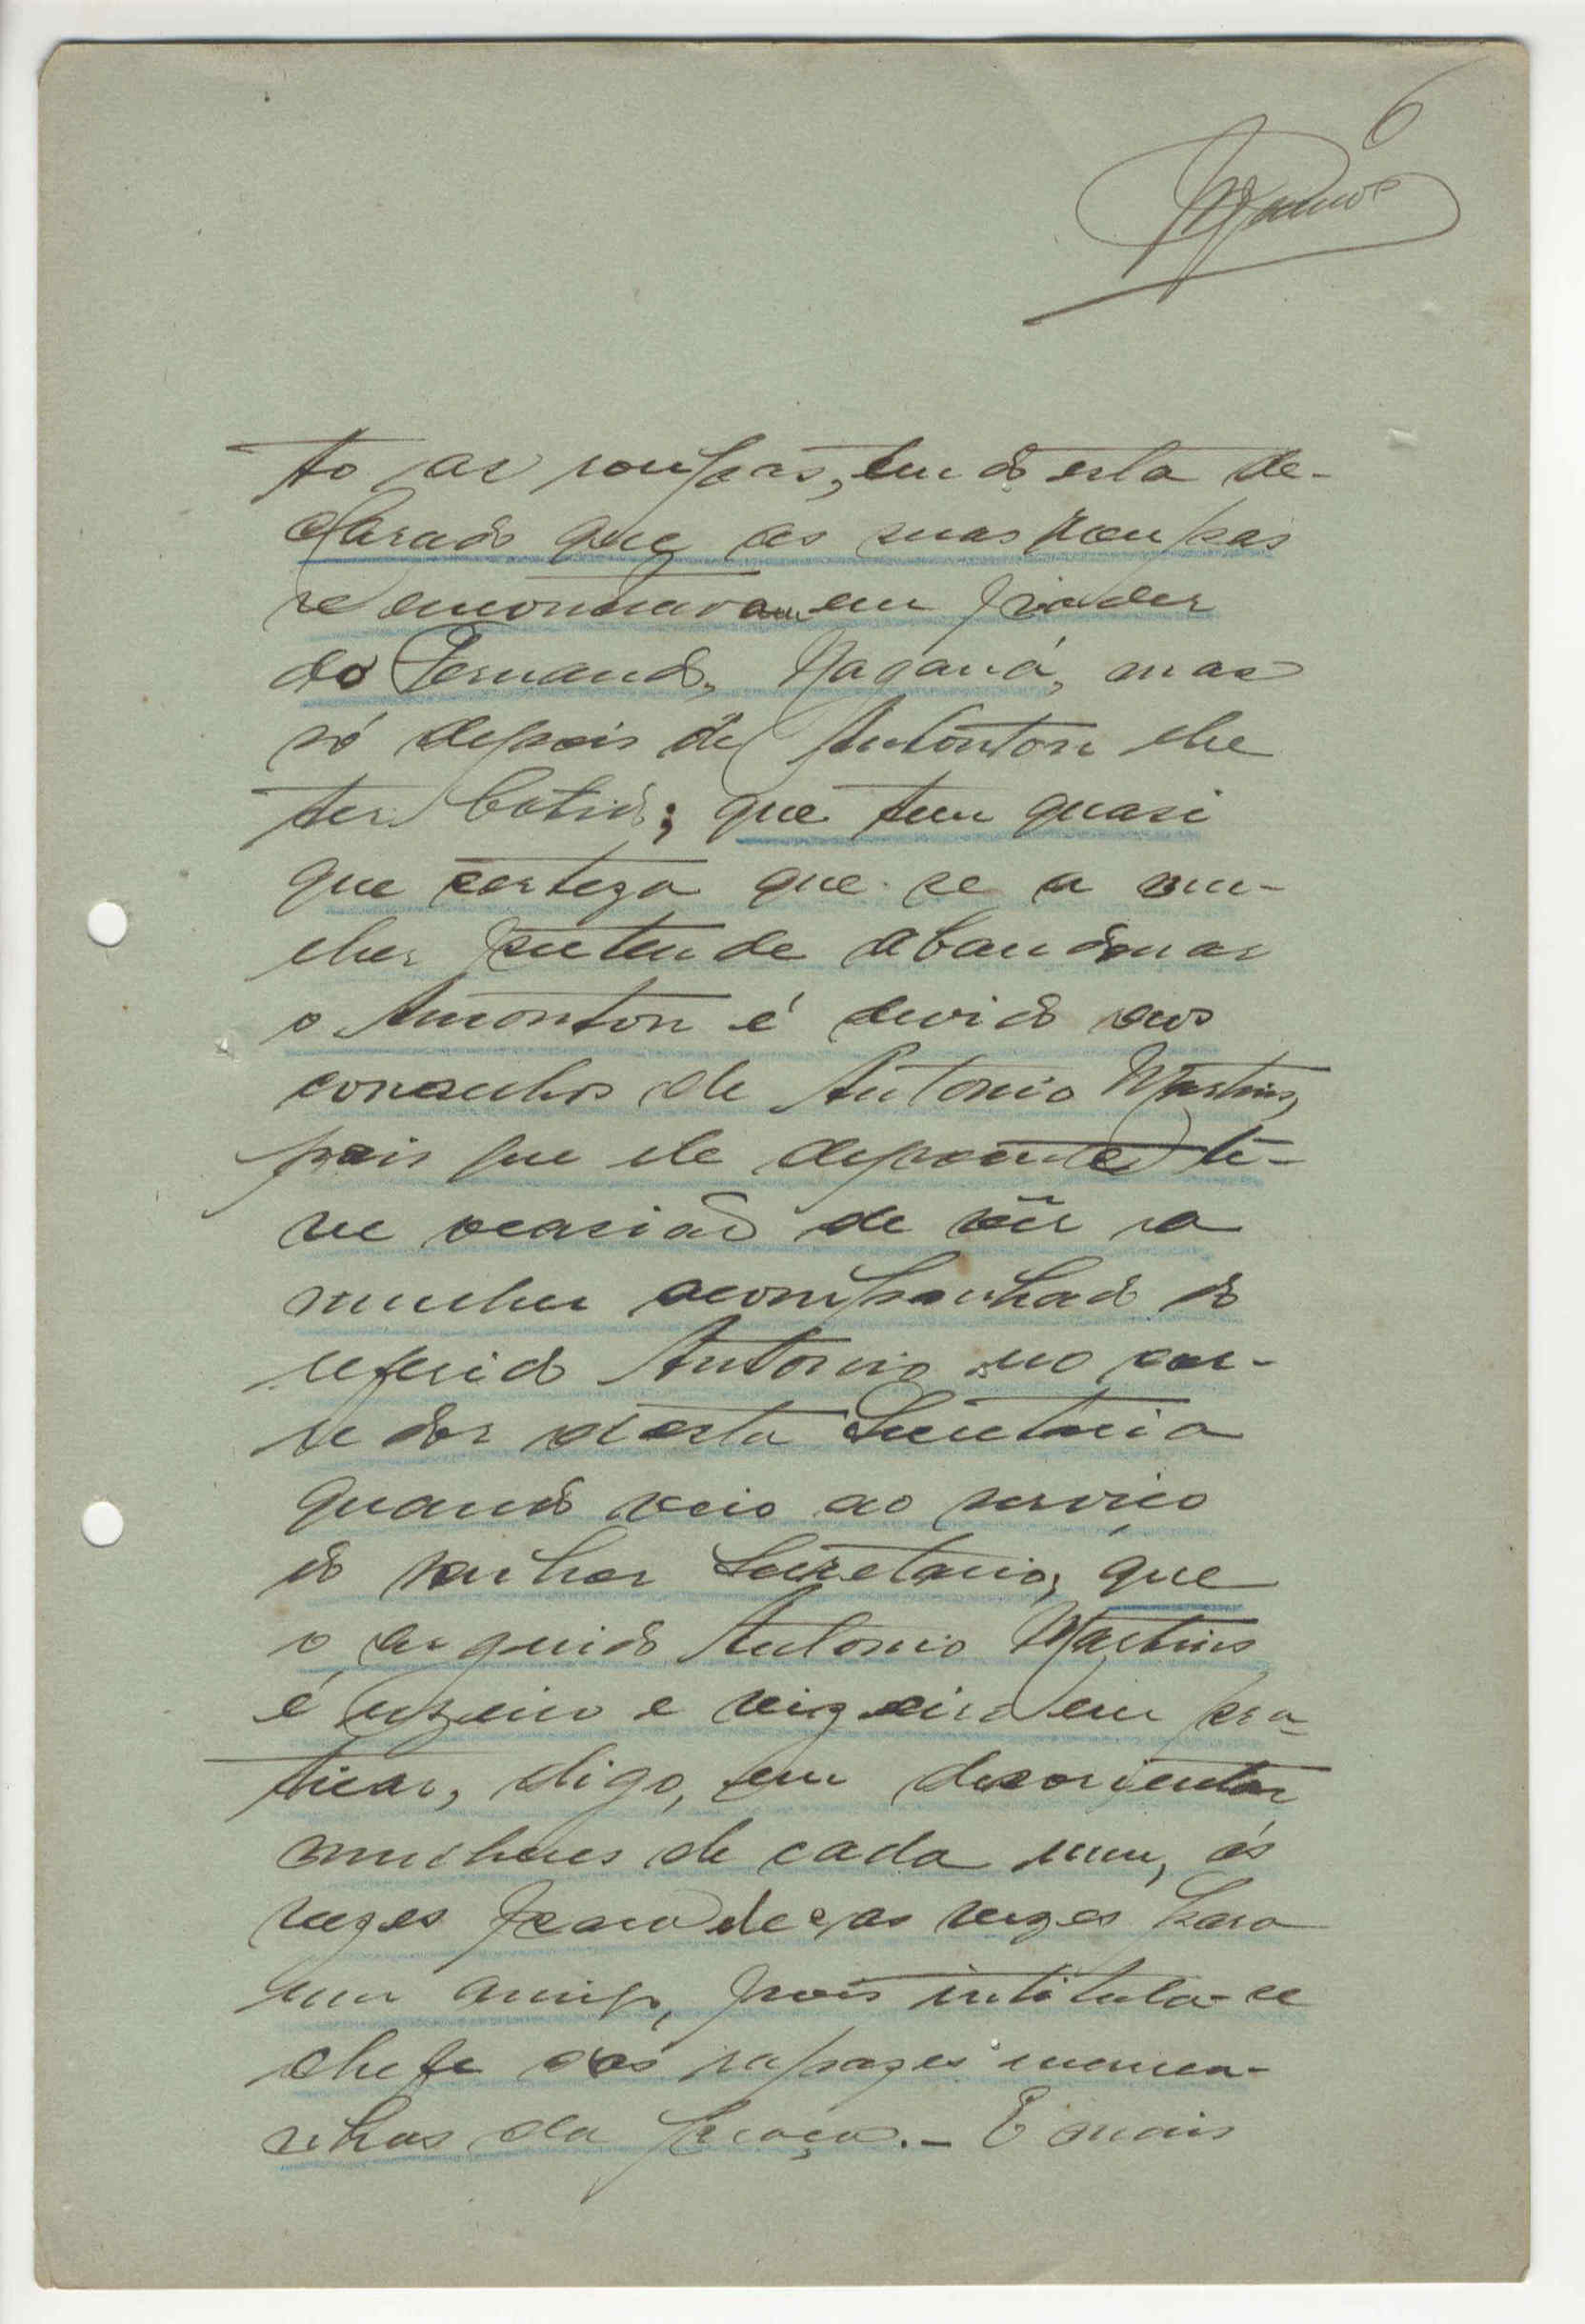 6
to as roupas, tendo esta de-
clarado que as suas roupas
se encontravam em poder
do Fernando, Naganá, mas
só depois de Antonton lhe
ter batido; que tem quasi
que certeza que se a mu-
lher pretende abandonar
o Amonton é devido aos
conselhos de Antonio Martins,
pois que ele depoente te-
ve ocasião de vêr a
mulher acompanhado do
referido Antonio no cor-
redor desta Secretaria
quando veio ao serviço
do senhor Secretario, que
o arguido Antonio Martins
é uzeiro e vizeiro em pra-
ticar, digo, em desorientar
mulheres de cada um, ás
vezes para ele e, as vezes para
um amigo, pois intitula-se
chefe dos rapazes
da praça. - E mais